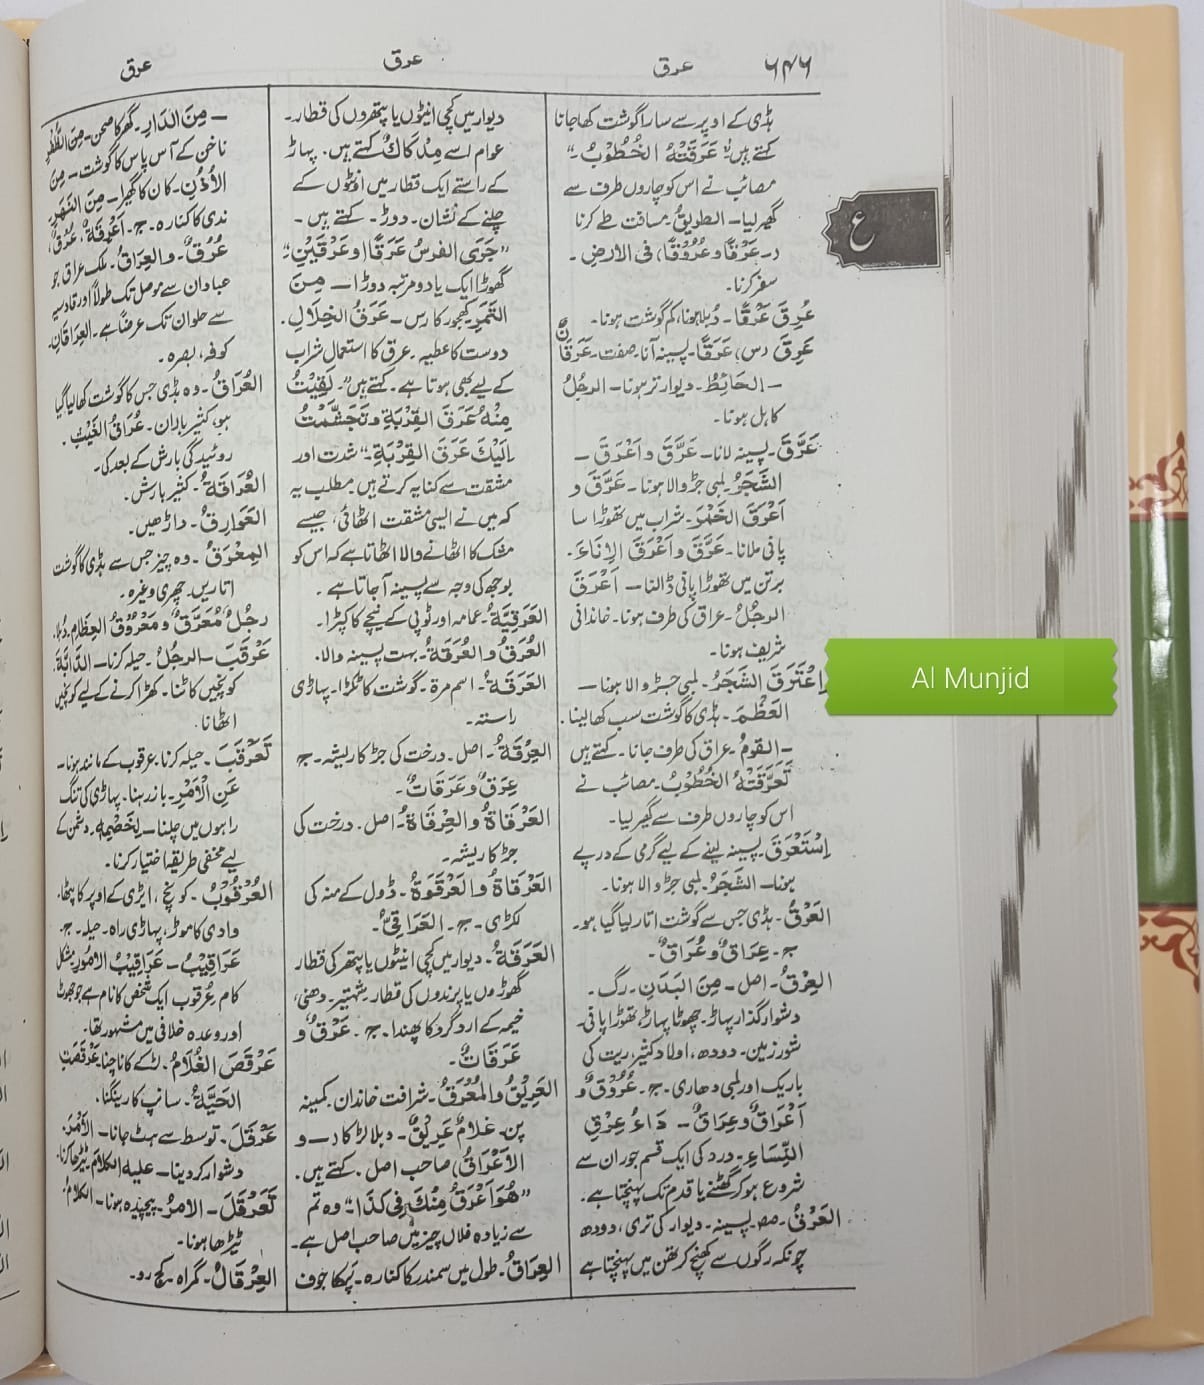 ۶۴۶
عرق
عرق
عرق
ہڈی کے اوپر سے سارا گوشت کھا جانا
کہتے ہیں "عَرَقَتْهُ الخُطُوْبُ"
مصائب نے اس کو چاروں طرف سے
گھیر لیا۔ الطریقُ۔ مسافت طے کرنا
(۔ عَرْقًا وعُرُوْقًا) فی الارضِ ۔
سفر کرنا۔
عُرِقَ عَرْقًا۔ دبلا ہونا، کم گوشت ہونا۔
عَرِقَ (س) عَرَقًا۔ پسینہ آنا۔ صفت۔ عَرْقَانٌ
— الحَائِطُ۔ دیوار تر ہونا۔ الرجُلُ
کاہل ہونا۔
عَرَّقَ۔ پسینہ لانا۔ عَرَّقَ و اَعْرَقَ —
الشَّجَرُ۔ لمبی جڑ والا ہونا۔ عَرَّقَ و
اَعْرَقَ الخَمْرَ۔ شراب میں تھوڑا سا
پانی ملانا۔ عَرَّقَ و اَعْرَقَ الاِنَاءَ۔
برتن میں تھوڑا پانی ڈالنا — اَعْرَقَ
الرجُلُ۔ عراق کی طرف ہونا۔ خاندانی
شریف ہونا۔
اِعْتَرَقَ الشَّجَرُ۔ لمبی جڑ والا ہونا —
العَظْمَ۔ ہڈی کا گوشت سب کھا لینا۔
— القومُ۔ عراق کی طرف جانا۔ کہتے ہیں
تَعَرَّقَتْهُ الخُطُوْبُ۔ مصائب نے
اس کو چاروں طرف سے گھیر لیا۔
اِسْتَعْرَقَ۔ پسینہ لینے کے لیے گرمی کے درپے
ہونا۔ الشَّجَرُ۔ لمبی جڑ والا ہونا۔
العَرْقُ۔ ہڈی جس سے گوشت اتار لیا گیا ہو۔
ج۔ عِرَاقٌ وعُرَاقٌ۔
العِرْقُ۔ اصل۔ مِنَ البَدَنِ۔ رگ۔
دشوار گذار پہاڑ۔ چھوٹا پہاڑ، تھوڑا پانی۔
شور زمین۔ دودھ، اولاد کثیر، ریت کی
باریک اور لمبی دھاری۔ ج۔ عُرُوْقٌ و
اَعْرَاقٌ وعِرَاقٌ۔ دَاءُ عِرْقِ
النِّسَاءِ۔ درد کی ایک قسم جو ران سے
شروع ہو کر گھٹنے یا قدم تک پہنچتا ہے۔
العَرَقُ۔ مص۔ پسینہ۔ دیوار کی تری، دودھ
چونکہ رگوں سے کھنچ کر تھن میں پہنچتا ہے
دیوار میں کچی اینٹوں یا پتھروں کی قطار۔
عوام اسے مِدْمَاکٌ کہتے ہیں۔ پہاڑ
کے راستے ایک قطار میں اونٹوں کے
چلنے کے نشان۔ دوڑ۔ کہتے ہیں۔
"جَرَی الفَرَسُ عَرَقًا او عَرَقَيْنِ"
گھوڑا ایک یا دو مرتبہ دوڑا — مِنَ
التَّمَرِ۔ کھجور کا رس۔ عَرَقُ الخِلَالِ۔
دوست کا عطیہ۔ عرق کا استعمال شراب
کے لیے بھی ہوتا ہے۔ کہتے ہیں "لَقِيْتُ
مِنْهُ عَرَقَ القِرْبَةِ وتَجَشَّمْتُ
اِلَيْكَ عَرَقَ القِرْبَةِ" شدت اور
مشقت سے کنایہ کرتے ہیں۔ مطلب یہ
کہ میں نے ایسی مشقت اٹھائی، جیسے
مشک کا اٹھانے والا اٹھاتا ہے کہ اس کو
بوجھ کی وجہ سے پسینہ آ جاتا ہے۔
العَرَقِيَّةُ۔ عمامہ اور ٹوپی کے نیچے کا کپڑا۔
العُرَقُ والعُرَقَةُ۔ بہت پسینہ والا۔
العَرْقَةُ۔ اسم مرۃ۔ گوشت کا ٹکڑا۔ پہاڑی
راستہ۔
العِرْقَةُ۔ اصل۔ درخت کی جڑ کا ریشہ۔ ج
عِرَقٌ وعِرَقَاتٌ۔
العَرْقَاةُ والعِرْقَاةُ۔ اصل۔ درخت کی
جڑ کا ریشہ۔
العَرْقَاةُ والعَرْقُوَةُ۔ ڈول کے منہ کی
لکڑی۔ ج۔ العَرَاقِیْ۔
العَرَقَةُ۔ دیوار میں کچی اینٹوں یا پتھر کی قطار
گھوڑوں یا پرندوں کی قطار۔ شہتیر۔ دھنی،
خیمہ کے ارد گرد کا پھندا۔ ج۔ عَرَقٌ و
عَرَقَاتٌ۔
العَرِيْقُ والمُعْرَقُ۔ شرافت خاندان۔ کمینہ
پن۔ غلامٌ عَرِيْقٌ۔ دبلا لڑکا (۔ و
الاَعْرَاقُ) صاحب اصل۔ کہتے ہیں۔
"هُوَ اَعْرَقُ مِنْكَ فِی کَذَا" وہ تم
سے زیادہ فلاں چیز میں صاحب اصل ہے۔
العِرَاقُ۔ طول میں سمندر کا کنارہ۔ پَر کا جوف
— مِنَ الدَارِ۔ گھر کا صحن۔ مِنَ الظُّفْرِ
ناخن کے آس پاس کا گوشت۔ مِنَ
الاُذُنِ۔ کان کا گھیرا۔ مِنَ النَهَرِ۔
ندی کا کنارہ۔ ج۔ اَعْرِقَةٌ، عُرْقٌ،
عُرُقٌ۔ والعِرَاقُ۔ ملک عراق جو
عبادان سے موصل تک طولاً اور قادسیہ
سے حلوان تک عرضاً ہے۔ العِرَاقَانِ۔
کوفہ، بصرہ۔
العُرَاقُ۔ وہ ہڈی جس کا گوشت کھا لیا گیا
ہو، کثیر باران۔ عُرَاقُ الغَيْثِ۔
روئیدگی بارش کے بعد کی۔
العُرَاقَةُ۔ کثیر بارش۔
العَوَارِقُ۔ داڑھیں۔
المِعْرَقُ۔ وہ چیز جس سے ہڈی کا گوشت
اتاریں۔ چھری وغیرہ۔
رجُلٌ مُعَرَّقٌ ومَعْرُوْقُ العِظَامِ۔ دبلا۔
عَرْقَبَ۔ الرجُلُ۔ حیلہ کرنا۔ الدَّابَّةَ۔
کونچیں کاٹنا۔ کھڑا کرنے کے لیے کونچیں
اٹھانا۔
تَعَرْقَبَ۔ حیلہ کرنا۔ عرقوب کے مانند ہونا۔
عَنِ الْاَمْرِ۔ باز رہنا۔ پہاڑی کی تنگ
راہوں میں چلنا۔ لِخَصْمِهِ۔ دشمن کے
لیے مخفی طریقہ اختیار کرنا۔
العُرْقُوْبُ۔ کونچ، ایڑی کے اوپر کا پٹھا۔
وادی کا موڑ، پہاڑی راہ۔ حیلہ۔ ج۔
عَرَاقِيْبُ۔ عَرَاقِيْبُ الامُورِ۔ مشکل
کام۔ عُرقوب ایک شخص کا نام ہے جو جھوٹ
اور وعدہ خلافی میں مشہور تھا۔
عَرْقَصَ الغُلَامُ۔ لڑکے کا ناچنا۔ عَرْقَصَتِ
الحَيَّةُ۔ سانپ کا رینگنا۔
عَرْقَلَ۔ توسط سے ہٹ جانا۔ الاَمْرَ۔
دشوار کر دینا۔ علیہ الکلامَ۔ ٹیڑھا کرنا۔
تَعَرْقَلَ۔ الامرُ۔ پیچیدہ ہونا۔ الکلامُ۔
ٹیڑھا ہونا۔
العِرْقَالُ۔ گمراہ۔ کج رو۔
ع
Al Munjid